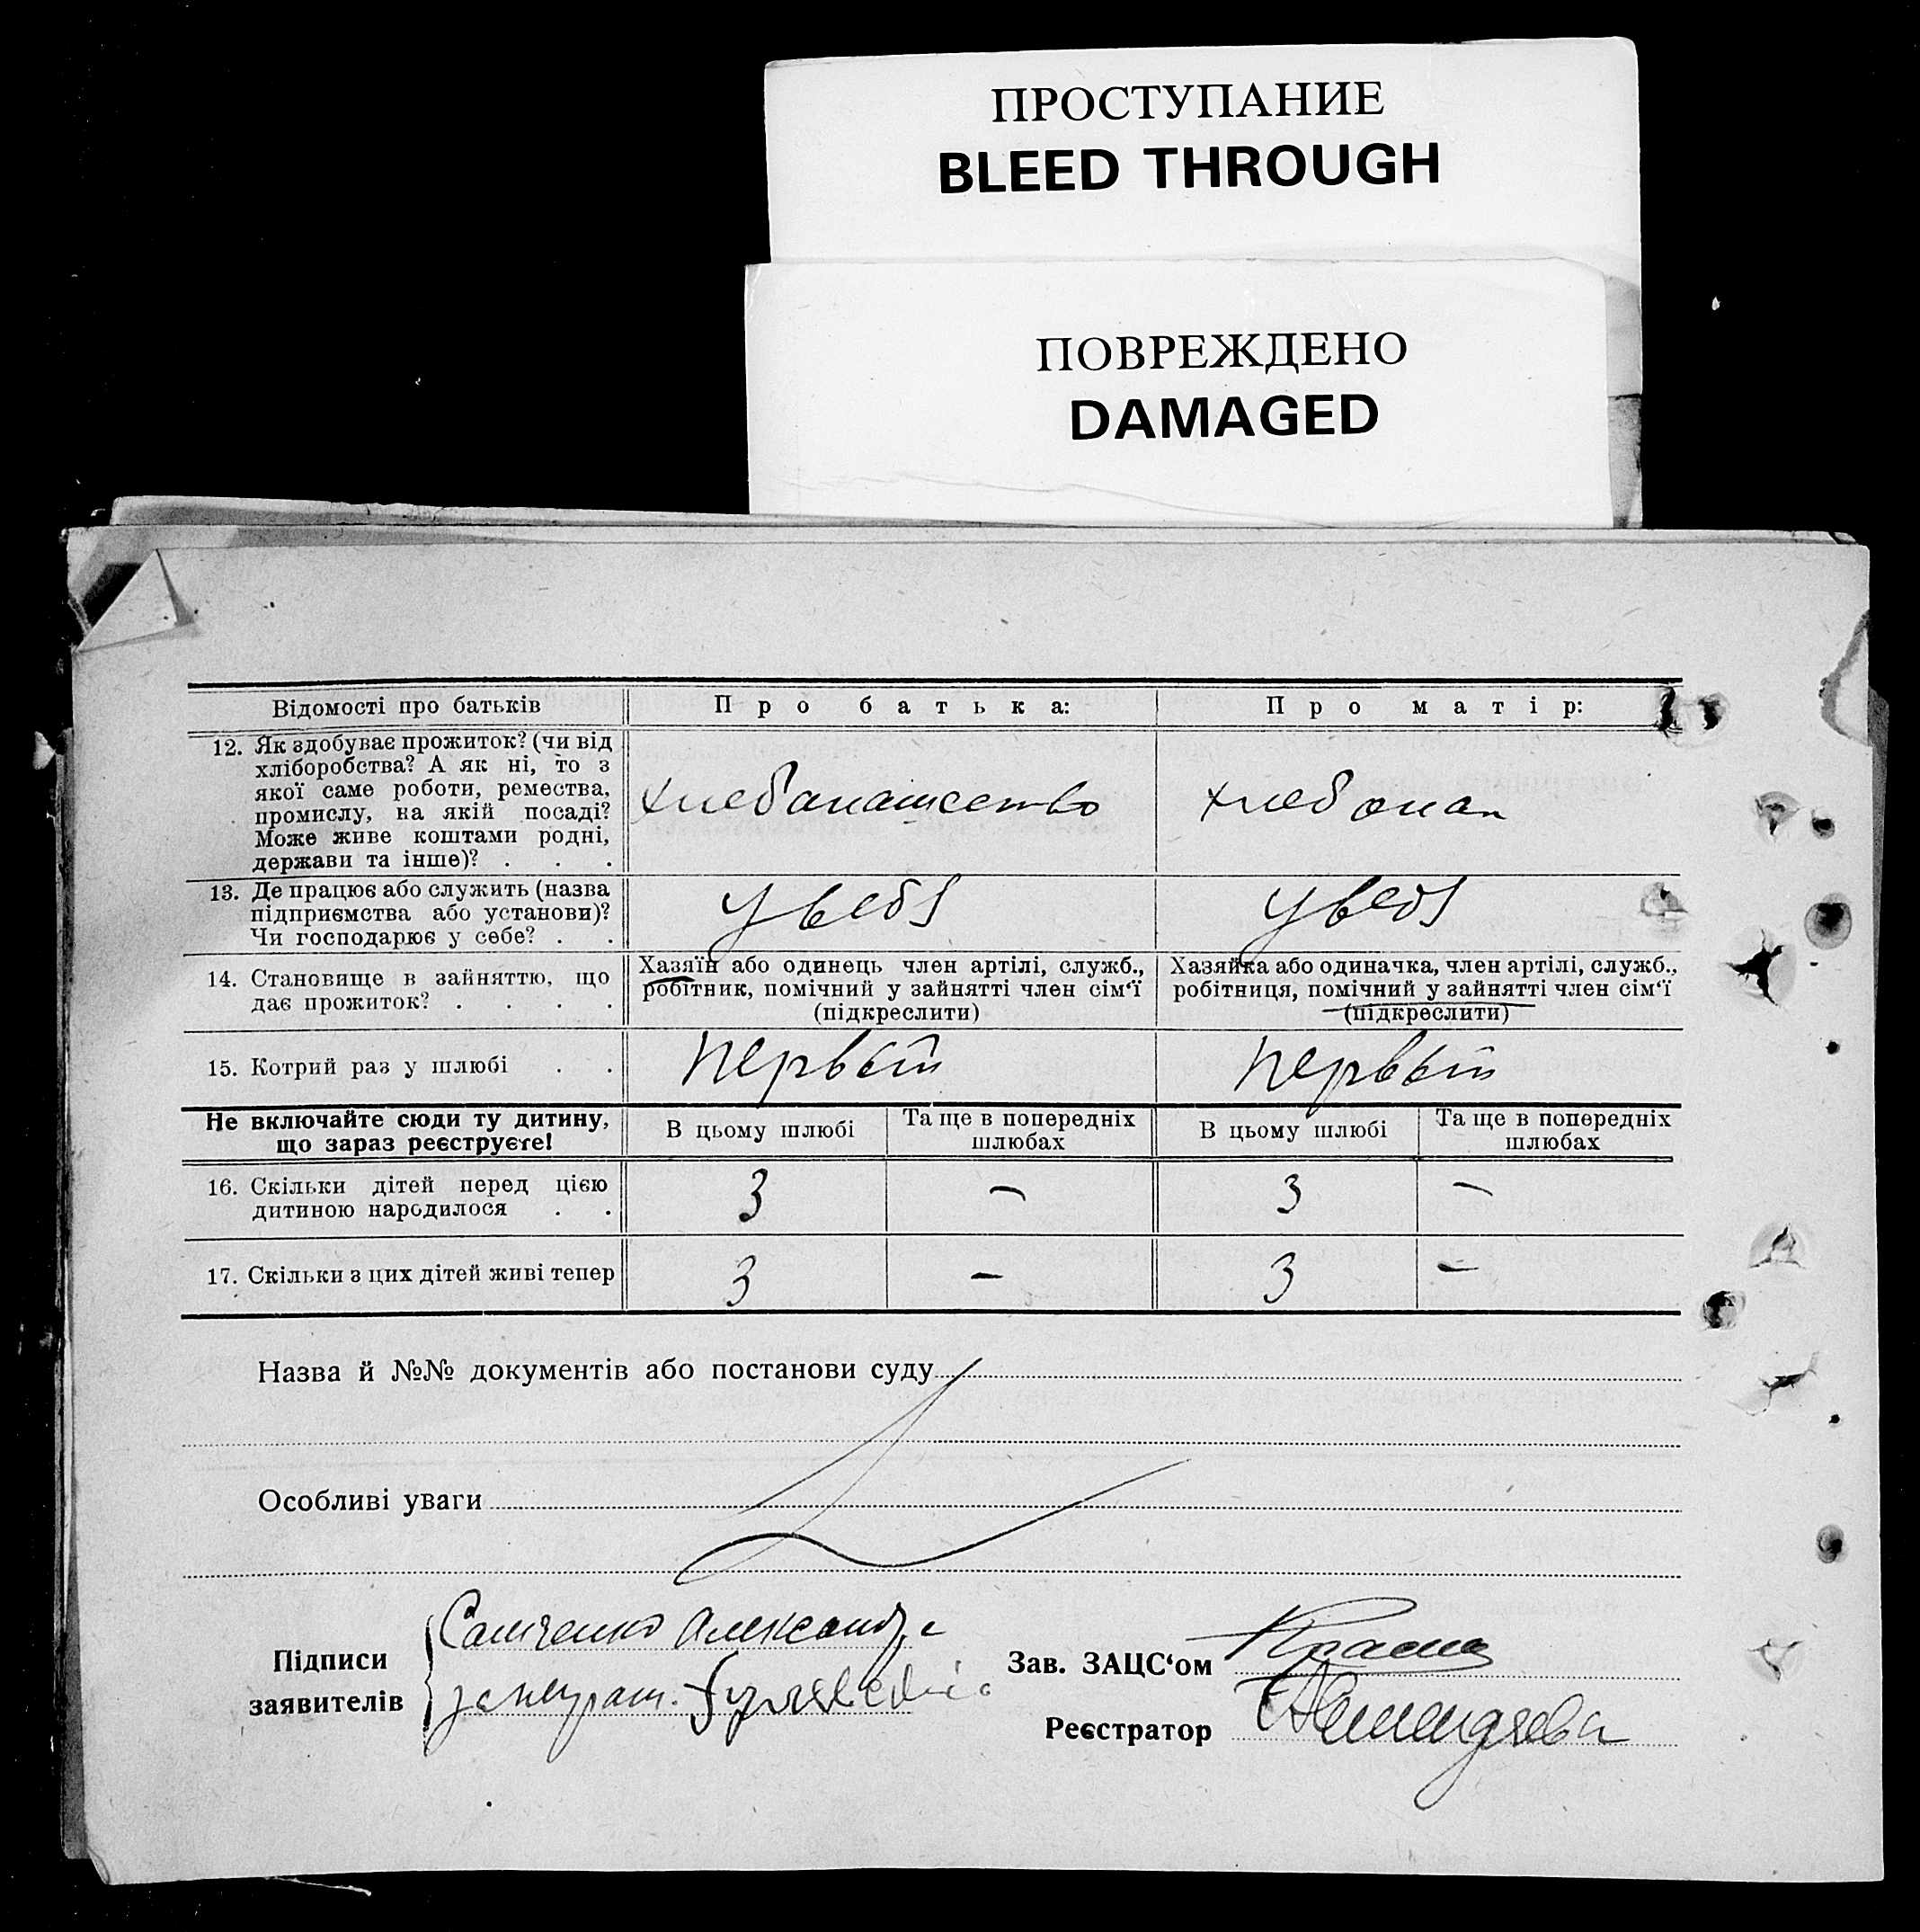 ПРОСТУПАНИЕ
BLEED THROUGH
ПОВРЕЖДЕНО
DAMAGED
Відомості про батьків Про батька: Про матір:
12. Як здобуває прожиток? (чи від
хліборобства? А як ні, то з
якої саме роботи, ремества,
промислу, на якій посаді?
Може живе коштами родні,
держави та інше)? . . .
хлебопашество хлебопаш
13. Де працює або служить (назва
підприємства або установи)?
Чи господарює у себе? . .
у себя у себя
14. Становище в зайняттю, що
дає прожиток? . . . .
Хазяїн або одинець член артілі, служб.,
робітник, помічний у зайнятті член сім‘ї
(підкреслити)
Хазяйка або одиначка, член артілі, служб.,
робітниця, помічний у зайнятті член сім‘ї
(підкреслити)
15. Котрий раз у шлюбі . . первый первый
Не включайте сюди ту дитину,
що зараз реєструєте!
В цьому шлюбі
Та ще в попередніх
шлюбах
В цьому шлюбі
Та ще в попередніх
шлюбах
16. Скільки дітей перед цією
дитиною народилося . .
3 — 3 —
17. Скільки з цих дітей живі тепер 3 — 3 —
Назва й №№ документів або постанови суду
Особливі уваги
Підписи
заявителів
Самченко Александр
Зав. ЗАЦС‘ом
Реєстратор